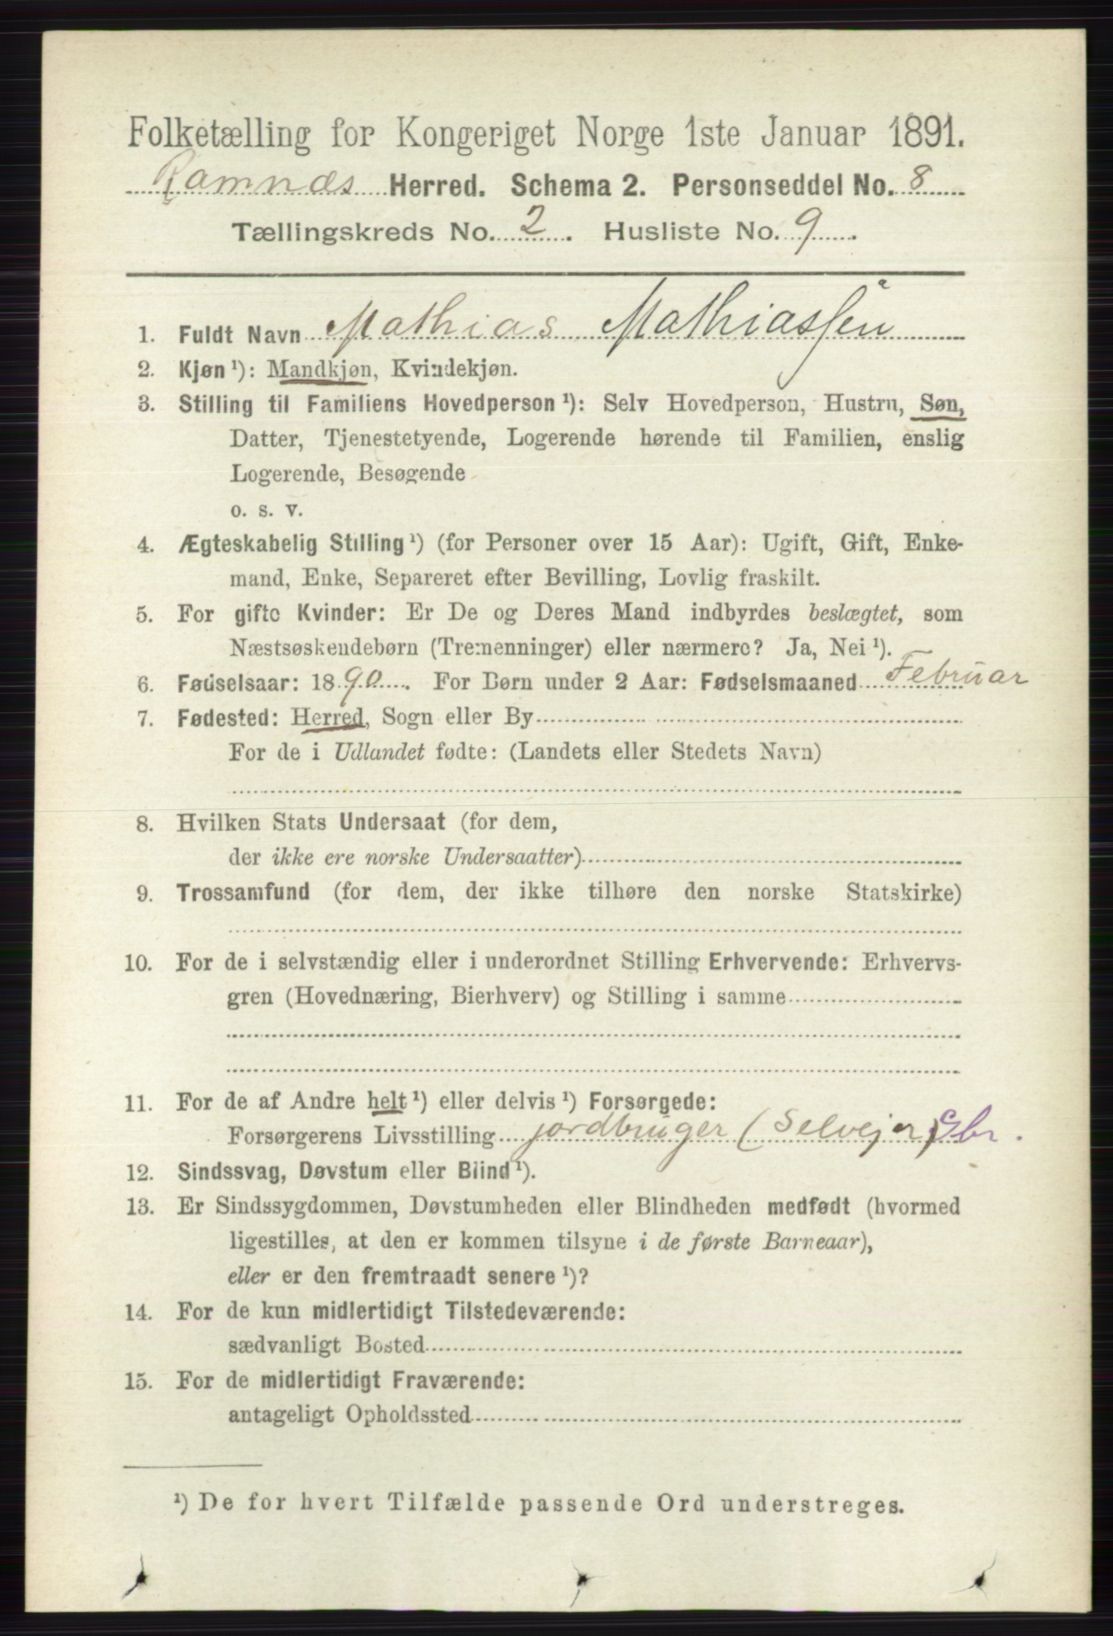 Folketælling for Kongeriget Norge 1ste Januar 1891.
Ramnæs Herred. Schema 2. Personseddel No. 8
Tællingskreds No. 2. Husliste No. 9.
1. Fuldt Navn Mathias Mathiassen
2. Kjøn ¹): Mandkjøn, Kvindekjøn.
3. Stilling til Familiens Hovedperson ¹): Selv Hovedperson, Hustru, Søn,
Datter, Tjenestetyende, Logerende hørende til Familien, enslig
Logerende, Besøgende
o. s. v.
4. Ægteskabelig Stilling ¹) (for Personer over 15 Aar): Ugift, Gift, Enke-
mand, Enke, Separeret efter Bevilling, Lovlig fraskilt.
5. For gifte Kvinder: Er De og Deres Mand indbyrdes beslægtet, som
Næstsøskendebørn (Tremenninger) eller nærmere? Ja, Nei ¹).
6. Fødselsaar: 1890. For Børn under 2 Aar: Fødselsmaaned Februar
7. Fødested: Herred, Sogn eller By
For de i Udlandet fødte: (Landets eller Stedets Navn)
8. Hvilken Stats Undersaat (for dem,
der ikke ere norske Undersaatter)
9. Trossamfund (for dem, der ikke tilhøre den norske Statskirke)
10. For de i selvstændig eller i underordnet Stilling Erhvervende: Erhvervs-
gren (Hovednæring, Bierhverv) og Stilling i samme
11. For de af Andre helt ¹) eller delvis ¹) Forsørgede:
Forsørgerens Livsstilling jordbruger (Selvejer) Gbr.
12. Sindssvag, Døvstum eller Blind ¹).
13. Er Sindssygdommen, Døvstumheden eller Blindheden medfødt (hvormed
ligestilles, at den er kommen tilsyne i de første Barneaar),
eller er den fremtraadt senere ¹)?
14. For de kun midlertidigt Tilstedeværende:
sædvanligt Bosted
15. For de midlertidigt Fraværende:
antageligt Opholdssted
¹) De for hvert Tilfælde passende Ord understreges.